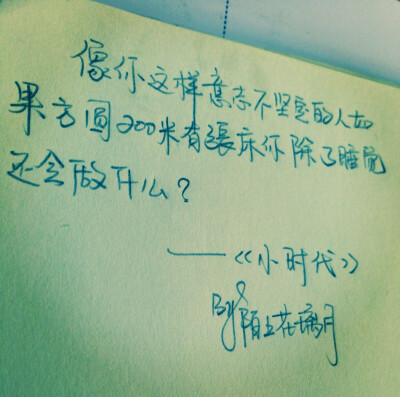 像你这样意志不坚定的人如
果方圆200米有張床你除了睡觉
还会做什么？
——《小时代》
By 陌上花璃月